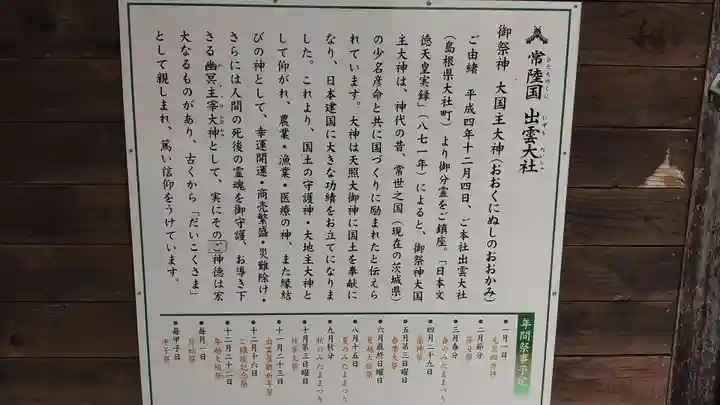 常陸国 出雲大社
ひたちのくに いずも たいしゃ
御祭神 大国主大神(おおくにぬしのおおかみ)
ご由緒 平成四年十二月四日、ご本社出雲大社
(島根県大社町)より御分霊をご鎮座。「日本文
徳天皇実録」(八七一年)によると、御祭神大国
主大神は、神代の昔、常世之国(現在の茨城県)
の少名彦命と共に国づくりに励まれたと伝えら
れています。大神は天照大御神に国土を奉献に
なり、日本建国に大きな功績をお立てになりま
した。これより、国土の守護神・大地主大神と
して仰がれ、農業・漁業・医療の神、また縁結
びの神として、幸運開運・商売繁盛・災難除け・
さらには人間の死後の霊魂を御守護、お導き下
さる幽冥主宰大神として、実にそのご神徳は宏
大なるものがあり、古くから「だいこくさま」
として親しまれ、篤い信仰をうけています。
年間祭事予定
●一月一日
●二月節分
節分祭
●三月春分
春のみたままつり
●四月二十九日
●五月第三日曜日
春季大祭
●六月最終日曜日
夏越大祓祭
●八月十五日
夏のみたままつり
●九月秋分
秋のみたままつり
●十月第三日曜日
秋季大祭
●十一月二十三日
出雲屋敷新年祭
●十二月十六日
ご鎮座記念祭
●十二月二十二日
年越大祓祭
●毎月一日
月始祭
●毎甲子日
甲子祭